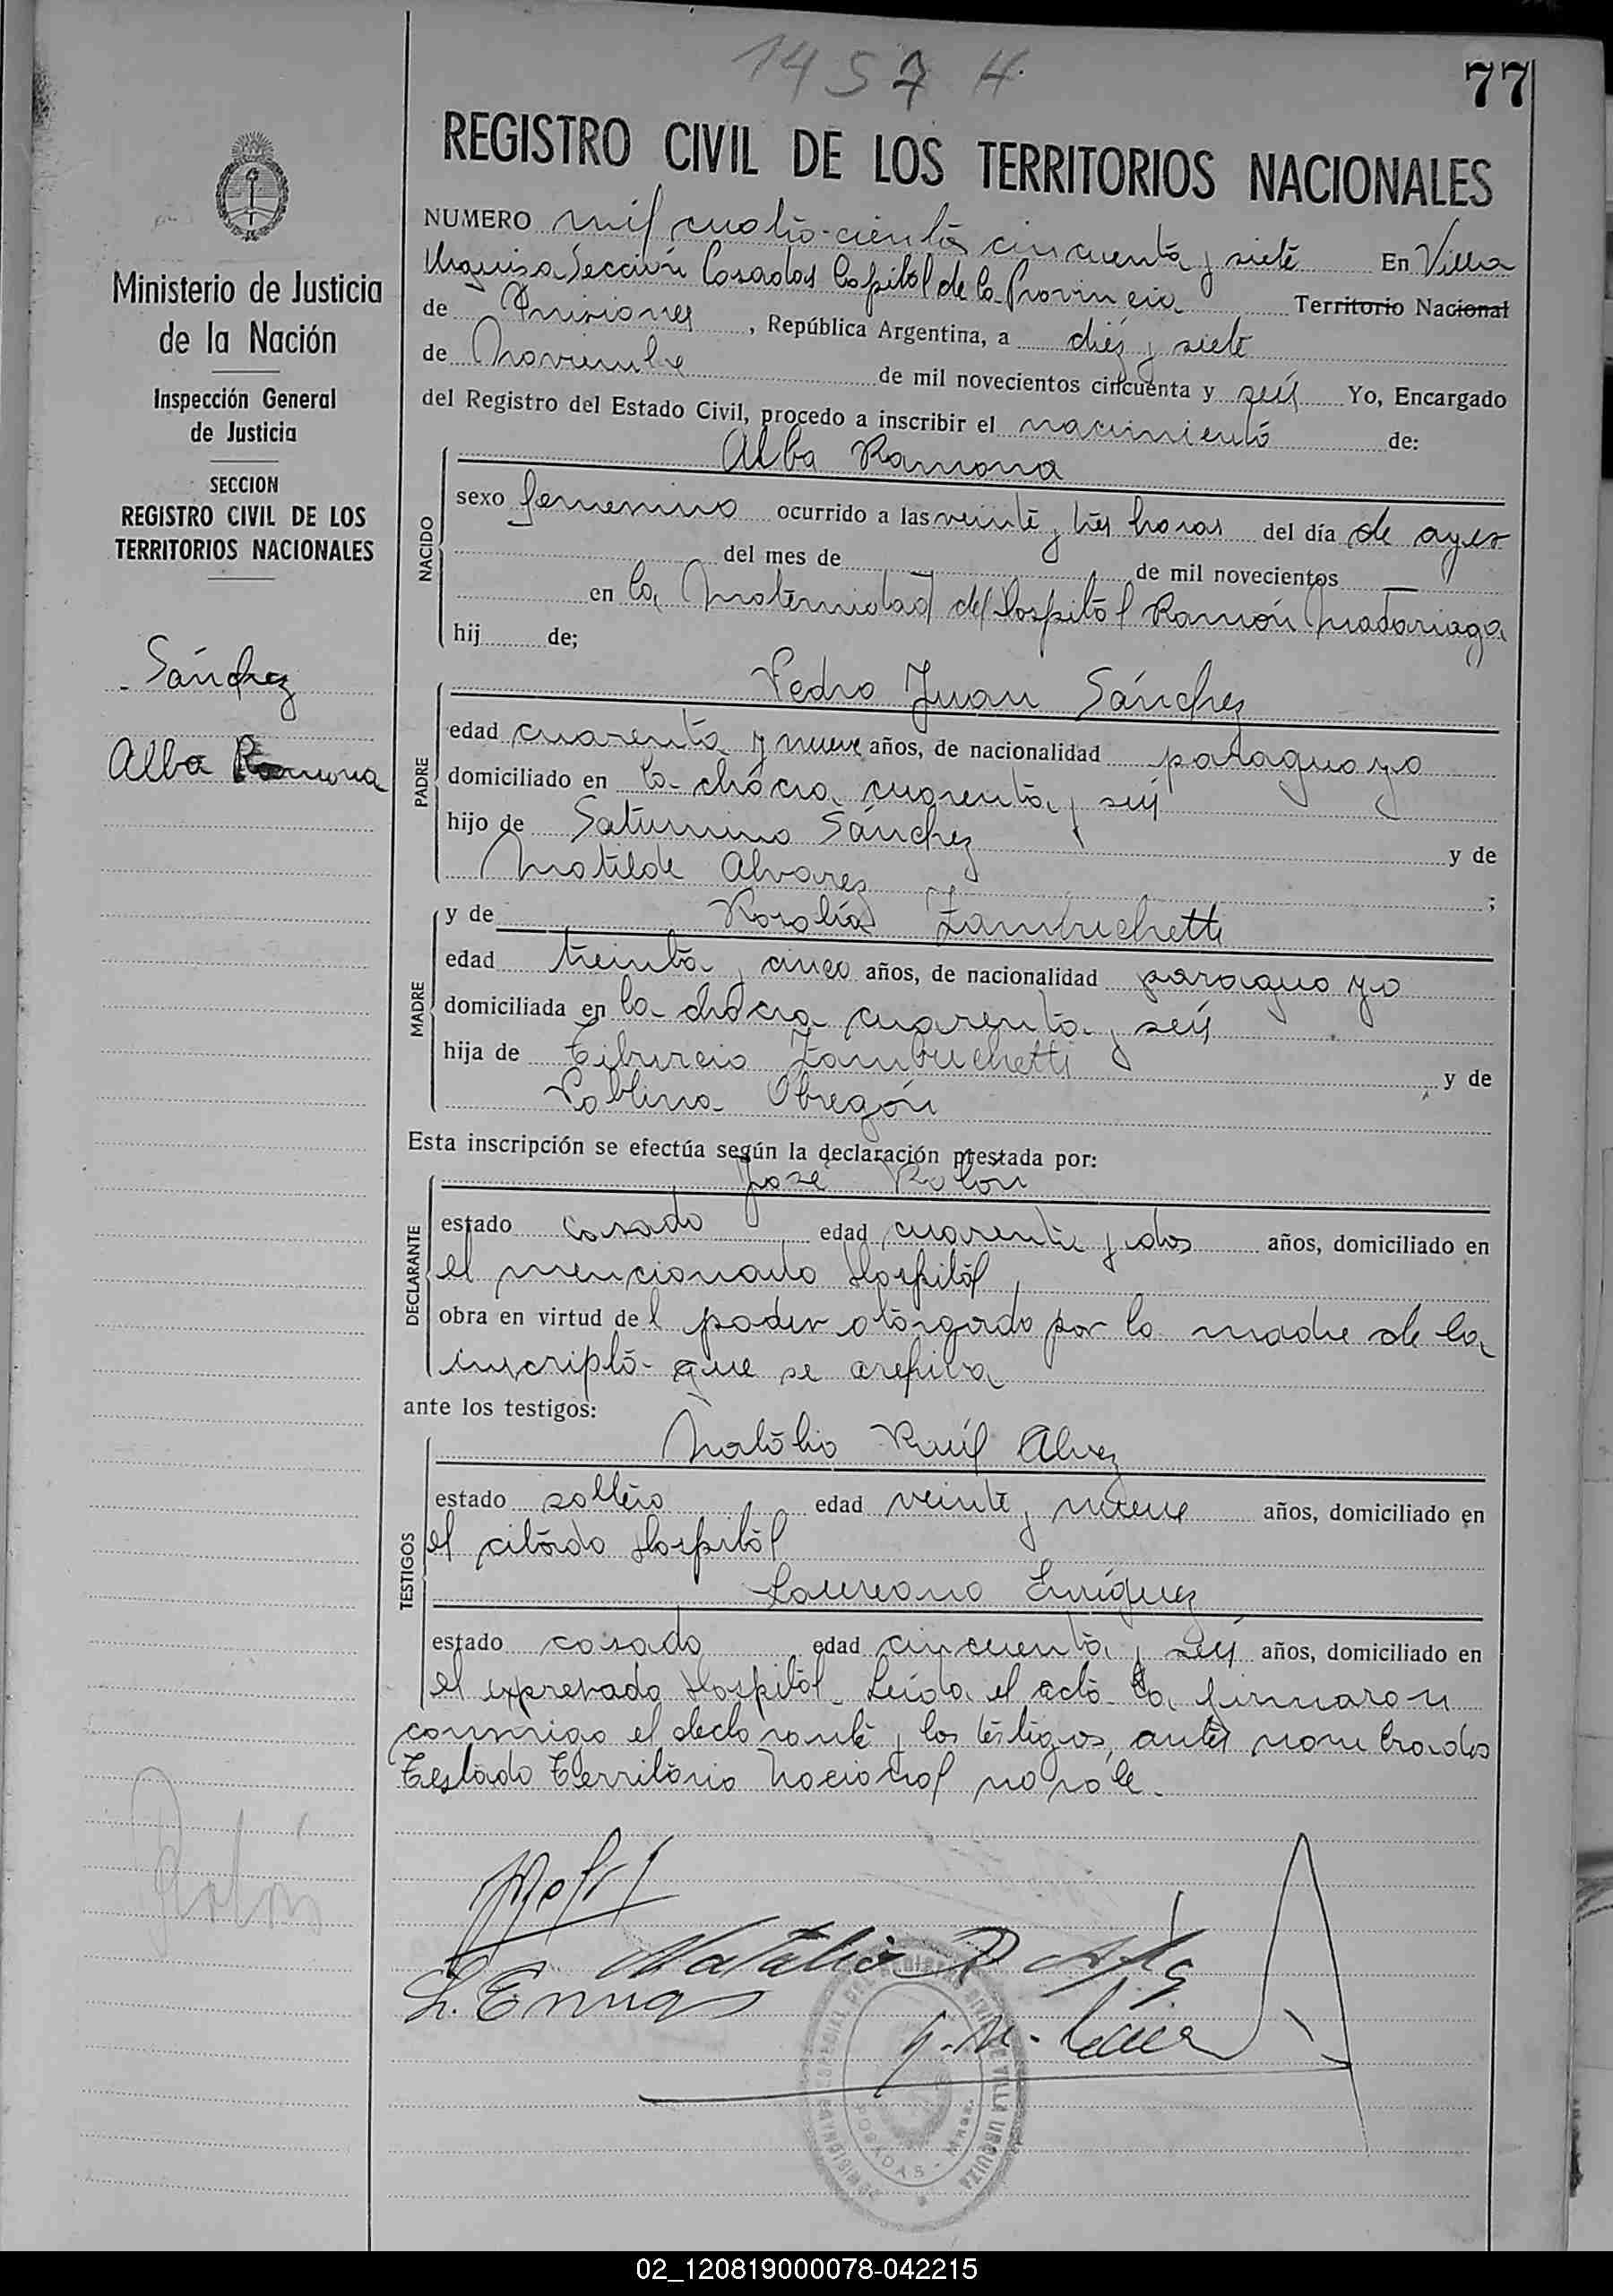 1457 H.
77
REGISTRO CIVIL DE LOS TERRITORIOS NACIONALES
Ministerio de Justicia
de la Nación
Inspección General
de Justicia
SECCION
REGISTRO CIVIL DE LOS
TERRITORIOS NACIONALES
Sánchez
Alba Ramona
Rolón
NUMERO mil cuatro-cientos cincuenta y siete En Villa
Urquiza Sección Posadas Capital de la Provincia Territorio Nacional
de Misiones, República Argentina, a diez y siete
de Noviembre de mil novecientos cincuenta y seis Yo, Encargado
del Registro del Estado Civil, procedo a inscribir el nacimiento de:
NACIDO
Alba Ramona
sexo femenino ocurrido a las veinte y tres horas del día de ayer
del mes de de mil novecientos
en la Maternidad del Hospital Ramón Madariaga
hij de;
PADRE
Pedro Juan Sánchez
edad cuarenta y nueve años, de nacionalidad paraguayo
domiciliado en la chacra cuarenta y seis
hijo de Saturnino Sánchez y de
Matilde Alvarez ;
MADRE
y de Rosalía Zambrichetti
edad treinta y cinco años, de nacionalidad paraguaya
domiciliada en la chacra cuarenta y seis
hija de Tiburcio Zambrichetti y de
Pablina Obregón
Esta inscripción se efectúa según la declaración prestada por:
DECLARANTE
José Rolon
estado casado edad cuarenta y dos años, domiciliado en
el mencionado Hospital
obra en virtud del poder otorgado por la madre de la
inscripta que se archiva
ante los testigos:
TESTIGOS
Natalio Raúl Alvez
estado soltero edad veinte y nueve años, domiciliado en
el citado Hospital
Laureano Enríquez
estado casado edad cincuenta y seis años, domiciliado en
el expresado Hospital. Leída el acta la firmaron
conmigo el declarante y los testigos, antes nombrados
Testado Territorio Nacional no vale.
Natalio R Alvez
L. Enriqz
VILLA URQUIZA
POSADAS - Mnes.
02_120819000078-042215